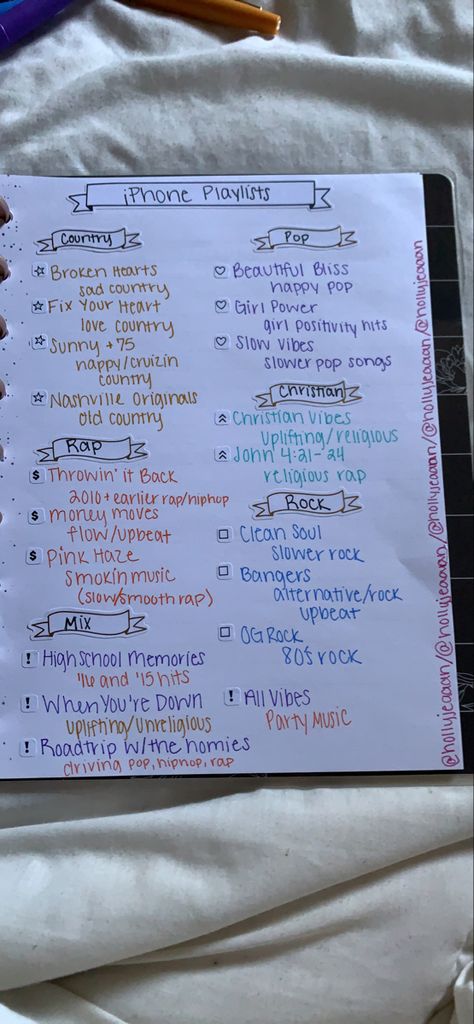 iPhone Playlists
Country
Broken Hearts
sad country
Fix Your Heart
love country
Sunny + 75
happy/cruizin
country
Nashville Originals
old country
Rap
Throwin' it Back
2010 + earlier rap/hiphop
money moves
flow/upbeat
Pink Haze
smokin music
(slow/smooth rap)
Mix
High School Memories
'16 and '15 hits
When You're Down
uplifting/unreligious
Roadtrip w/the homies
driving pop, hiphop, rap
Pop
Beautiful Bliss
happy pop
Girl Power
girl positivity hits
Slow Vibes
slower pop songs
Christian
Christian Vibes
Uplifting/religious
John 4:21-'24
religious rap
Rock
Clean Soul
Slower rock
Bangers
alternative/rock
upbeat
OG Rock
80's rock
All Vibes
Party Music
@hollyjeaaan/@hollyjeaaan/@hollyjeaaan/@hollyjeaaan/@hollyjeaaan